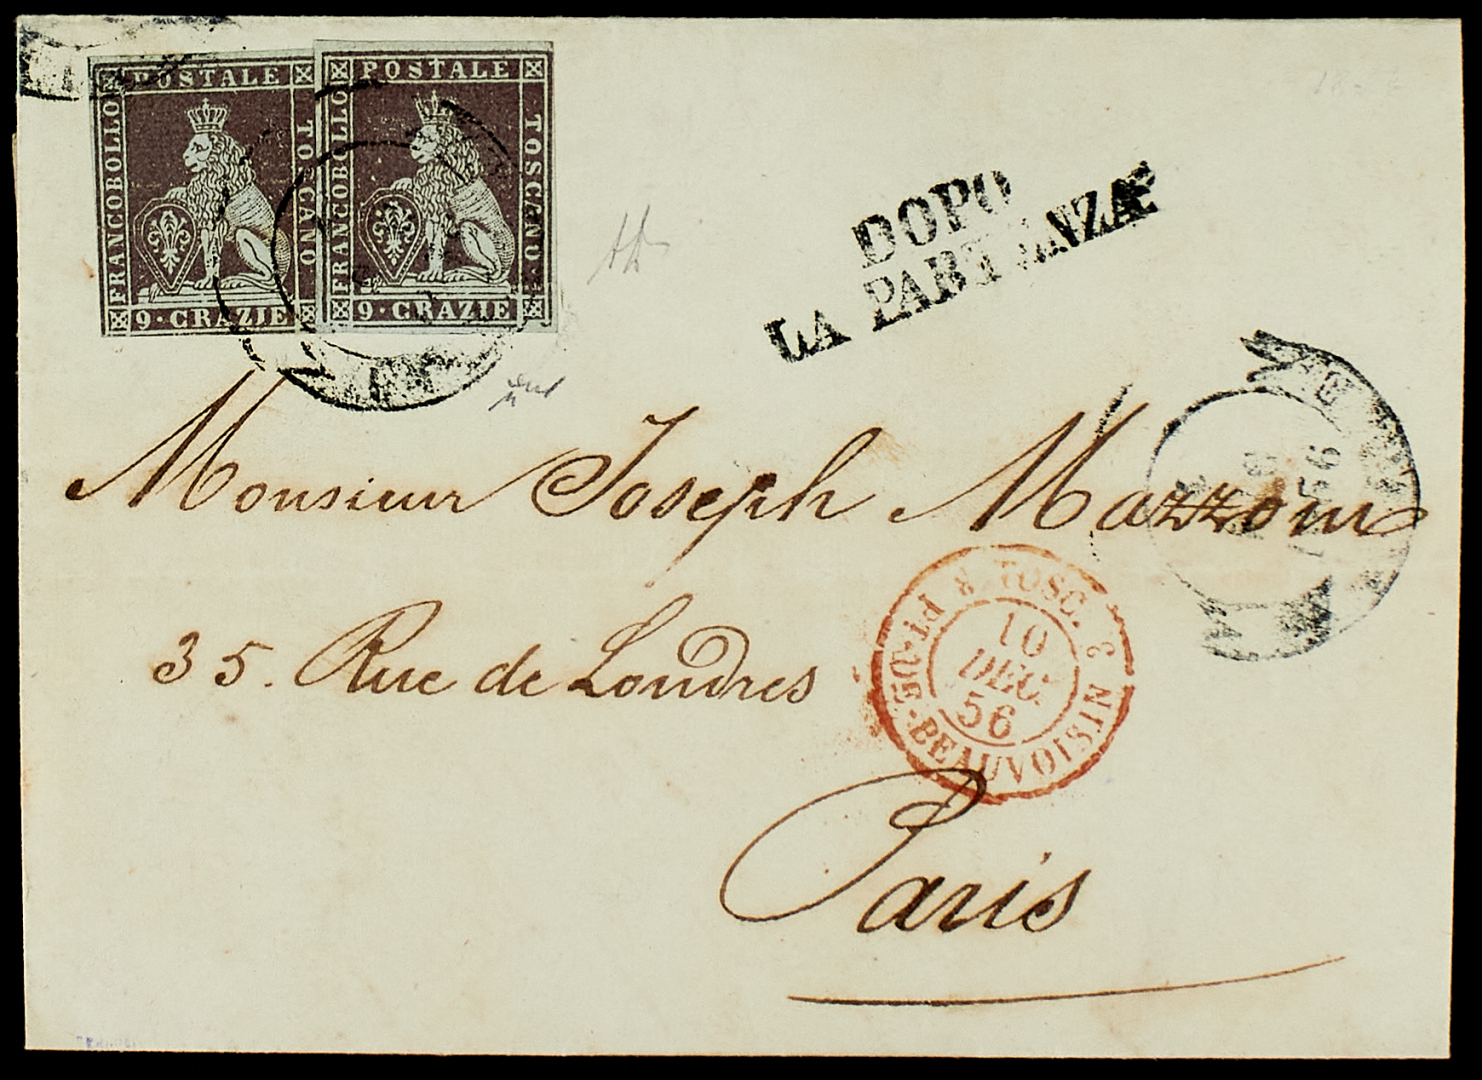 POSTALE
FRANCOBOLLO
TOSCANO
9·CRAZIE
POSTALE
FRANCOBOLLO
TOSCANO
9·CRAZIE
DOPO
LA PARTENZA
1856
Monsieur Joseph Mazzoni
TOSC. 3 PT-DE-BEAUVOISIN
10
DEC
56
35. Rue de Londres
Paris